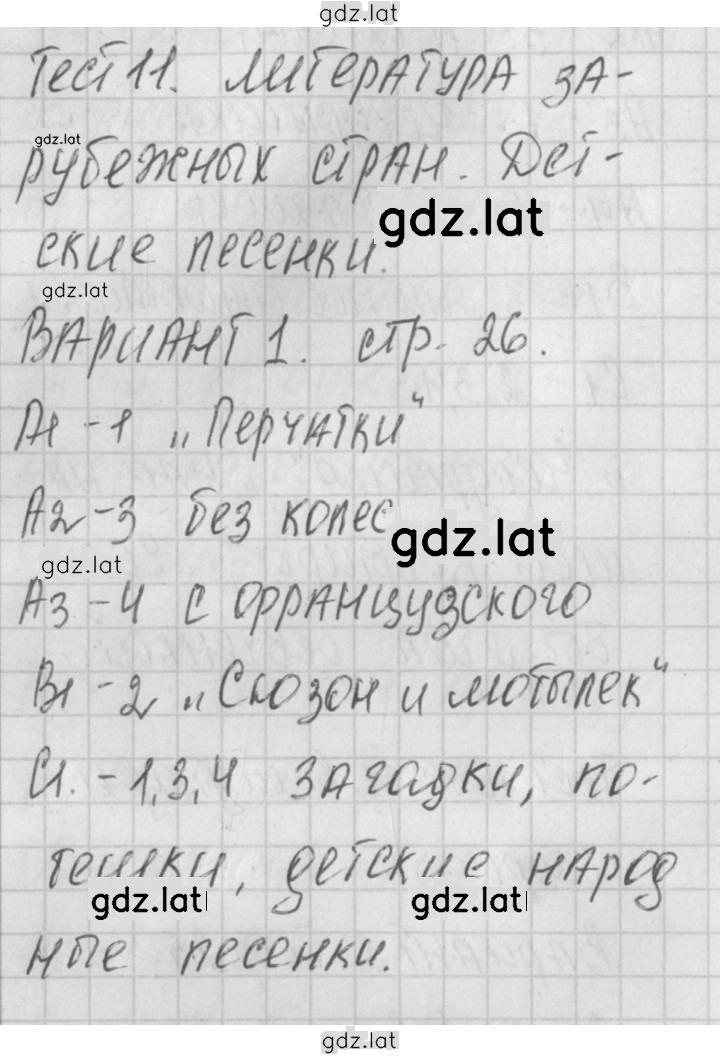 gdz.lat
Тест 11. Литература за-
gdz.lat
рубежных стран. Дет-
gdz.lat
ские песенки.
gdz.lat
Вариант 1. стр. 26.
А1 - 1 „Перчатки“
А2 - 3 без колес
gdz.lat
gdz.lat
А3 - 4 с французского
В1 - 2 „Сюзон и мотылек“
С1. - 1,3,4 загадки, по-
тешки, детские народ
gdz.lat gdz.lat
ные песенки.
gdz.lat